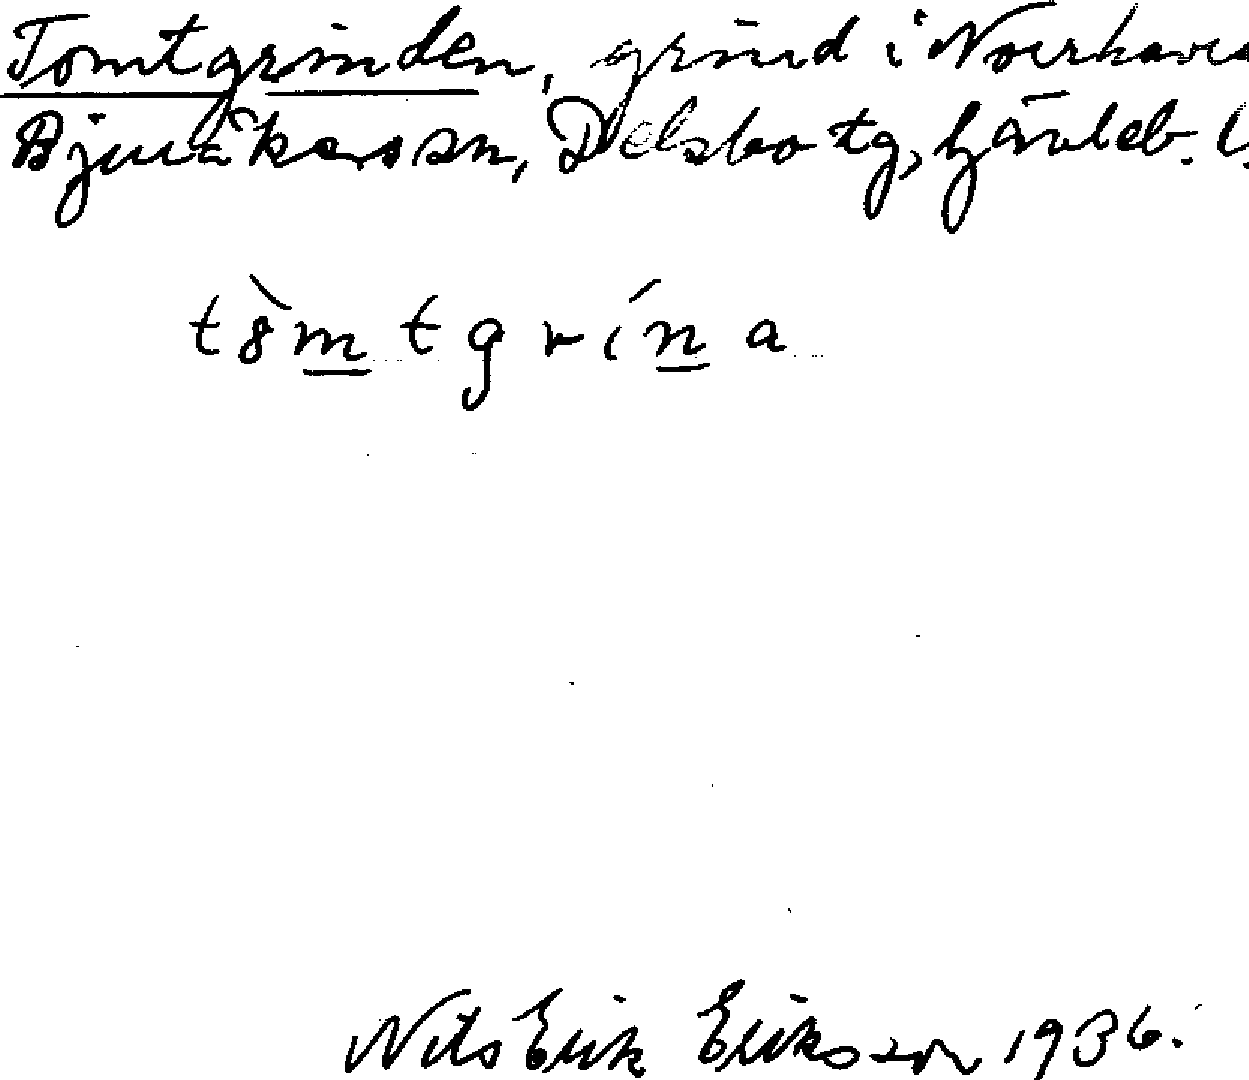 Tomtgrinden, grind i Norrhavra
Bjuråkers sn, Delsbo tg, Gävleb. l.
tò̀m̲tgrín̲a
Nils Erik Eriksson 1936.